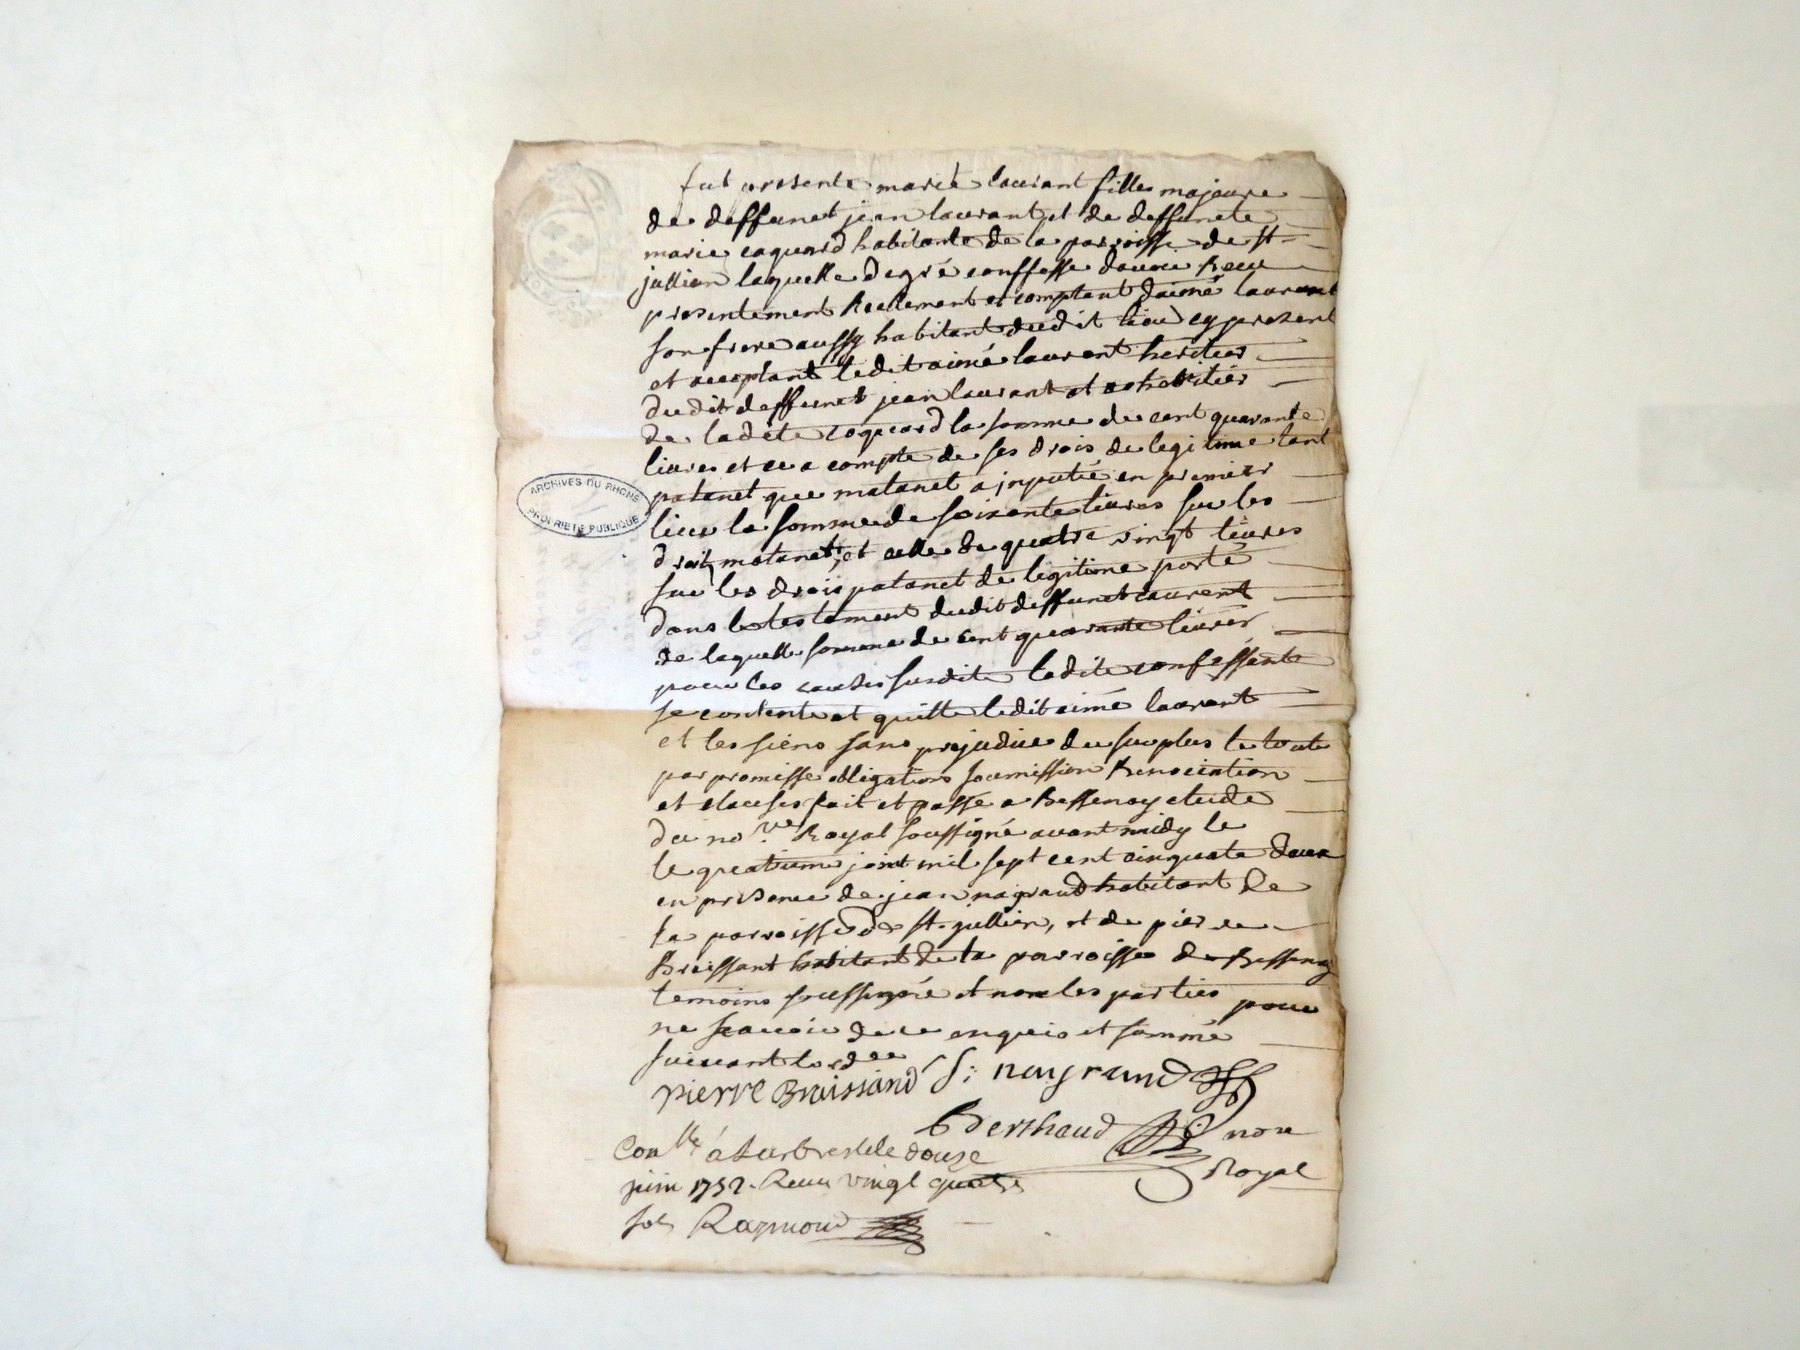 fut presente marie laurant fille majeure
de deffunct jean laurant et de deffuncte
marie coquard habitante de la parroisse de st
jullien laquelle de gré conffesse davoir Receu
presentement Reellement et comptant daimé laurant
son frere aussy habitant dudit lieu cy present
et acceptant ledit aimé laurent heritier
dudit deffunct jean laurant et coheritier
de ladite coquard la somme de cent quarante
livres et ce a compte de ses drois de legitime tant
patanet que matanet a jnputé en premier
lieu la somme de soixante livres sur les
droit matanet, et celle de quatre vingt livres
sur les drois patanet de legitime porté
dans le testament dudit deffunct laurent
de laquelle somme de cent quarante livres
pour les causes susdite ladite confessente
se contente et quitte ledit aimé laurant
et les siens sans prejudice du surplus le toute
par promisse obligations soumission Renociation
et clauses fait et passé a Bessenay etude
du no.re Royal soussigné avant midy le
le quatrieme joint mil sept cent cinquate deux
en presence de jean nagrand habitant de
la parroisse de st. jullien, et de pierre
Braissant habitant de la parroisse de Bessenay
temoins soussigné et non les parties pour
ne scavoir de ce enquis et sommé
suivant lord.ce
pierre Braissand J: naygrand
Berthaud nore
Royal
Con.lle a Larbresle le douze
juin 1752. Receu vingt quatre
sols Raymond
ARCHIVES DU RHONE
PROPRIETE PUBLIQUE